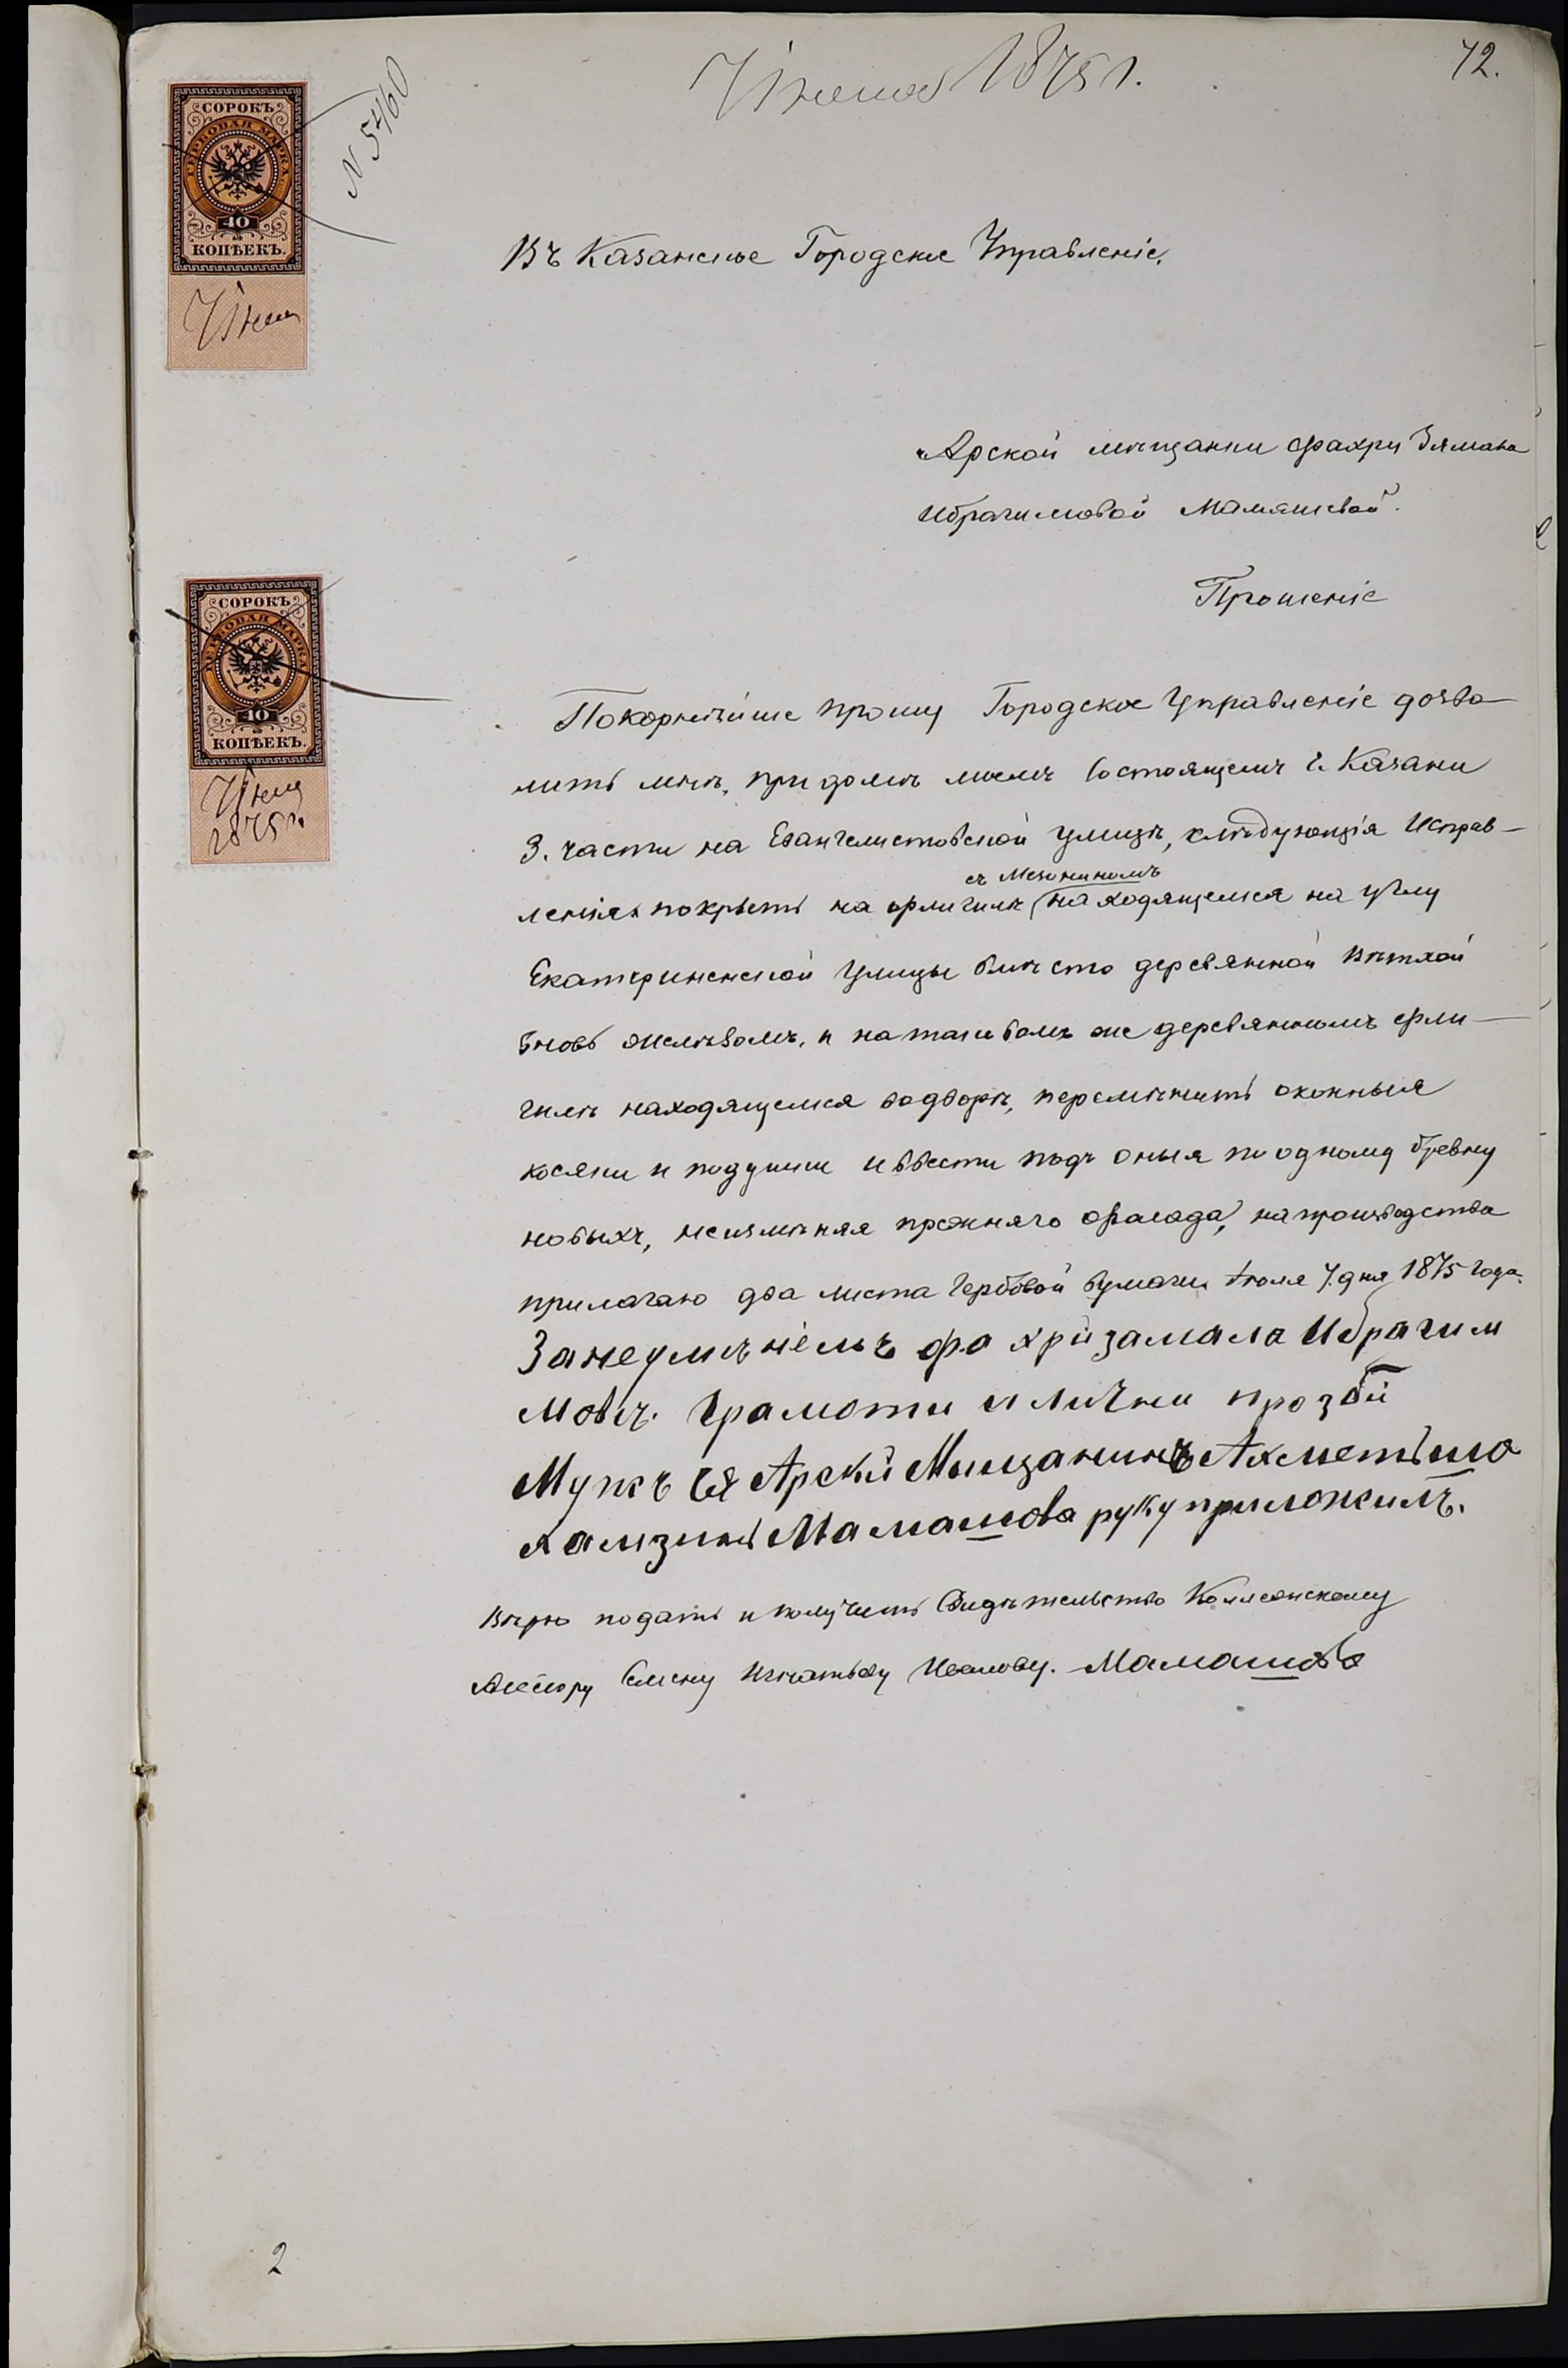 7 Июля 1875 г.
72.
N 5460
СОРОКЪ
ГЕРБОВАЯ МАРКА
40
КОПѢЕКЪ.
7 Июля
Въ Казанское Городское Управленіе.
Арской мѣщанки Фахри Зямала
Ибрагимовой Мамяшевой.
Прошеніе
СОРОКЪ
ГЕРБОВАЯ МАРКА
40
КОПѢЕКЪ.
7 Июля
1875 г.
Покорнѣйше прошу Городское Управленіе дозво-
лить мнѣ, при домѣ моемъ состоящемъ г. Казани
3. части на Евангелистовской улицѣ, слѣдующія исправ-
ленія: покрыть на флигилѣ съ мезониномъ находящемся на углу
Екатерининской улицы вмѣсто деревянной ветхой
вновь желѣзомъ, и на таковомъ же деревянномъ фли-
гилѣ находящемся во дворѣ, перемѣнить оконныя
косяки и подушки и ввести подъ оныя по одному бревну
новыхъ, неизмѣняя прежняго фасада, на производства
прилагаю два листа гербовой бумаги. Июля 7 дня 1875 года.
За неумѣніемъ Фахризамала Ибрагим
мовъ. грамоти и лични прозбӣ
Мужъ ея Арскй Мищанинъ Ахметьша
Хамзинъ Мамашова руку приложилъ.
Вѣрю подать и получить Свидѣтельство Коллежскому
Асессору Семену Игнатьеву Иванову. Мамашова
2